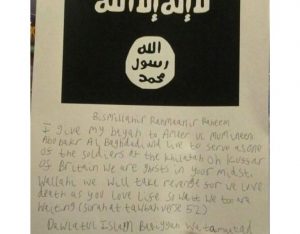 لا إله إلا الله
الله
رسول
محمد
Bismillahir Rahmaanir Raheem
I give my bayah to Ameer ul mumineen
Aboubakr Al Baghdadi wa live to serve as one
of the soldiers of the khilafah Oh Kuffar
of Britain we are ghosts in your midst
Wallahi we will take revenge for we love
death as you love life So wait we too are
waiting (Surahat tawbah verse 52)
Dawlatul Islam Baqiyah